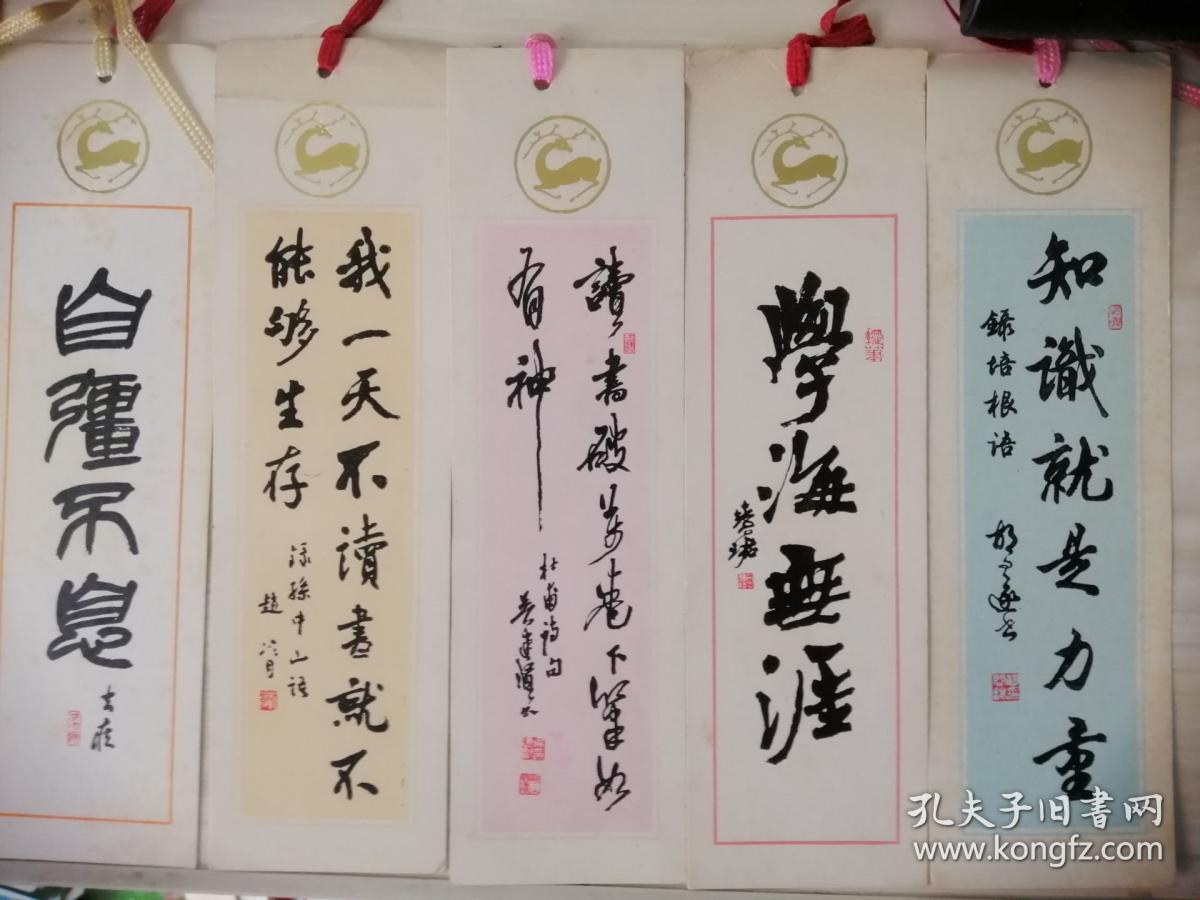 自彊不息
去疾
我一天不讀書就不
能够生存
錄孫中山語
趙冷月
讀書破萬卷下筆如
有神
杜甫詩句
吳建賢書
學海無涯
慧珺
知識就是力量
錄培根語
胡問遂書
孔夫子旧書网
www.kongfz.com